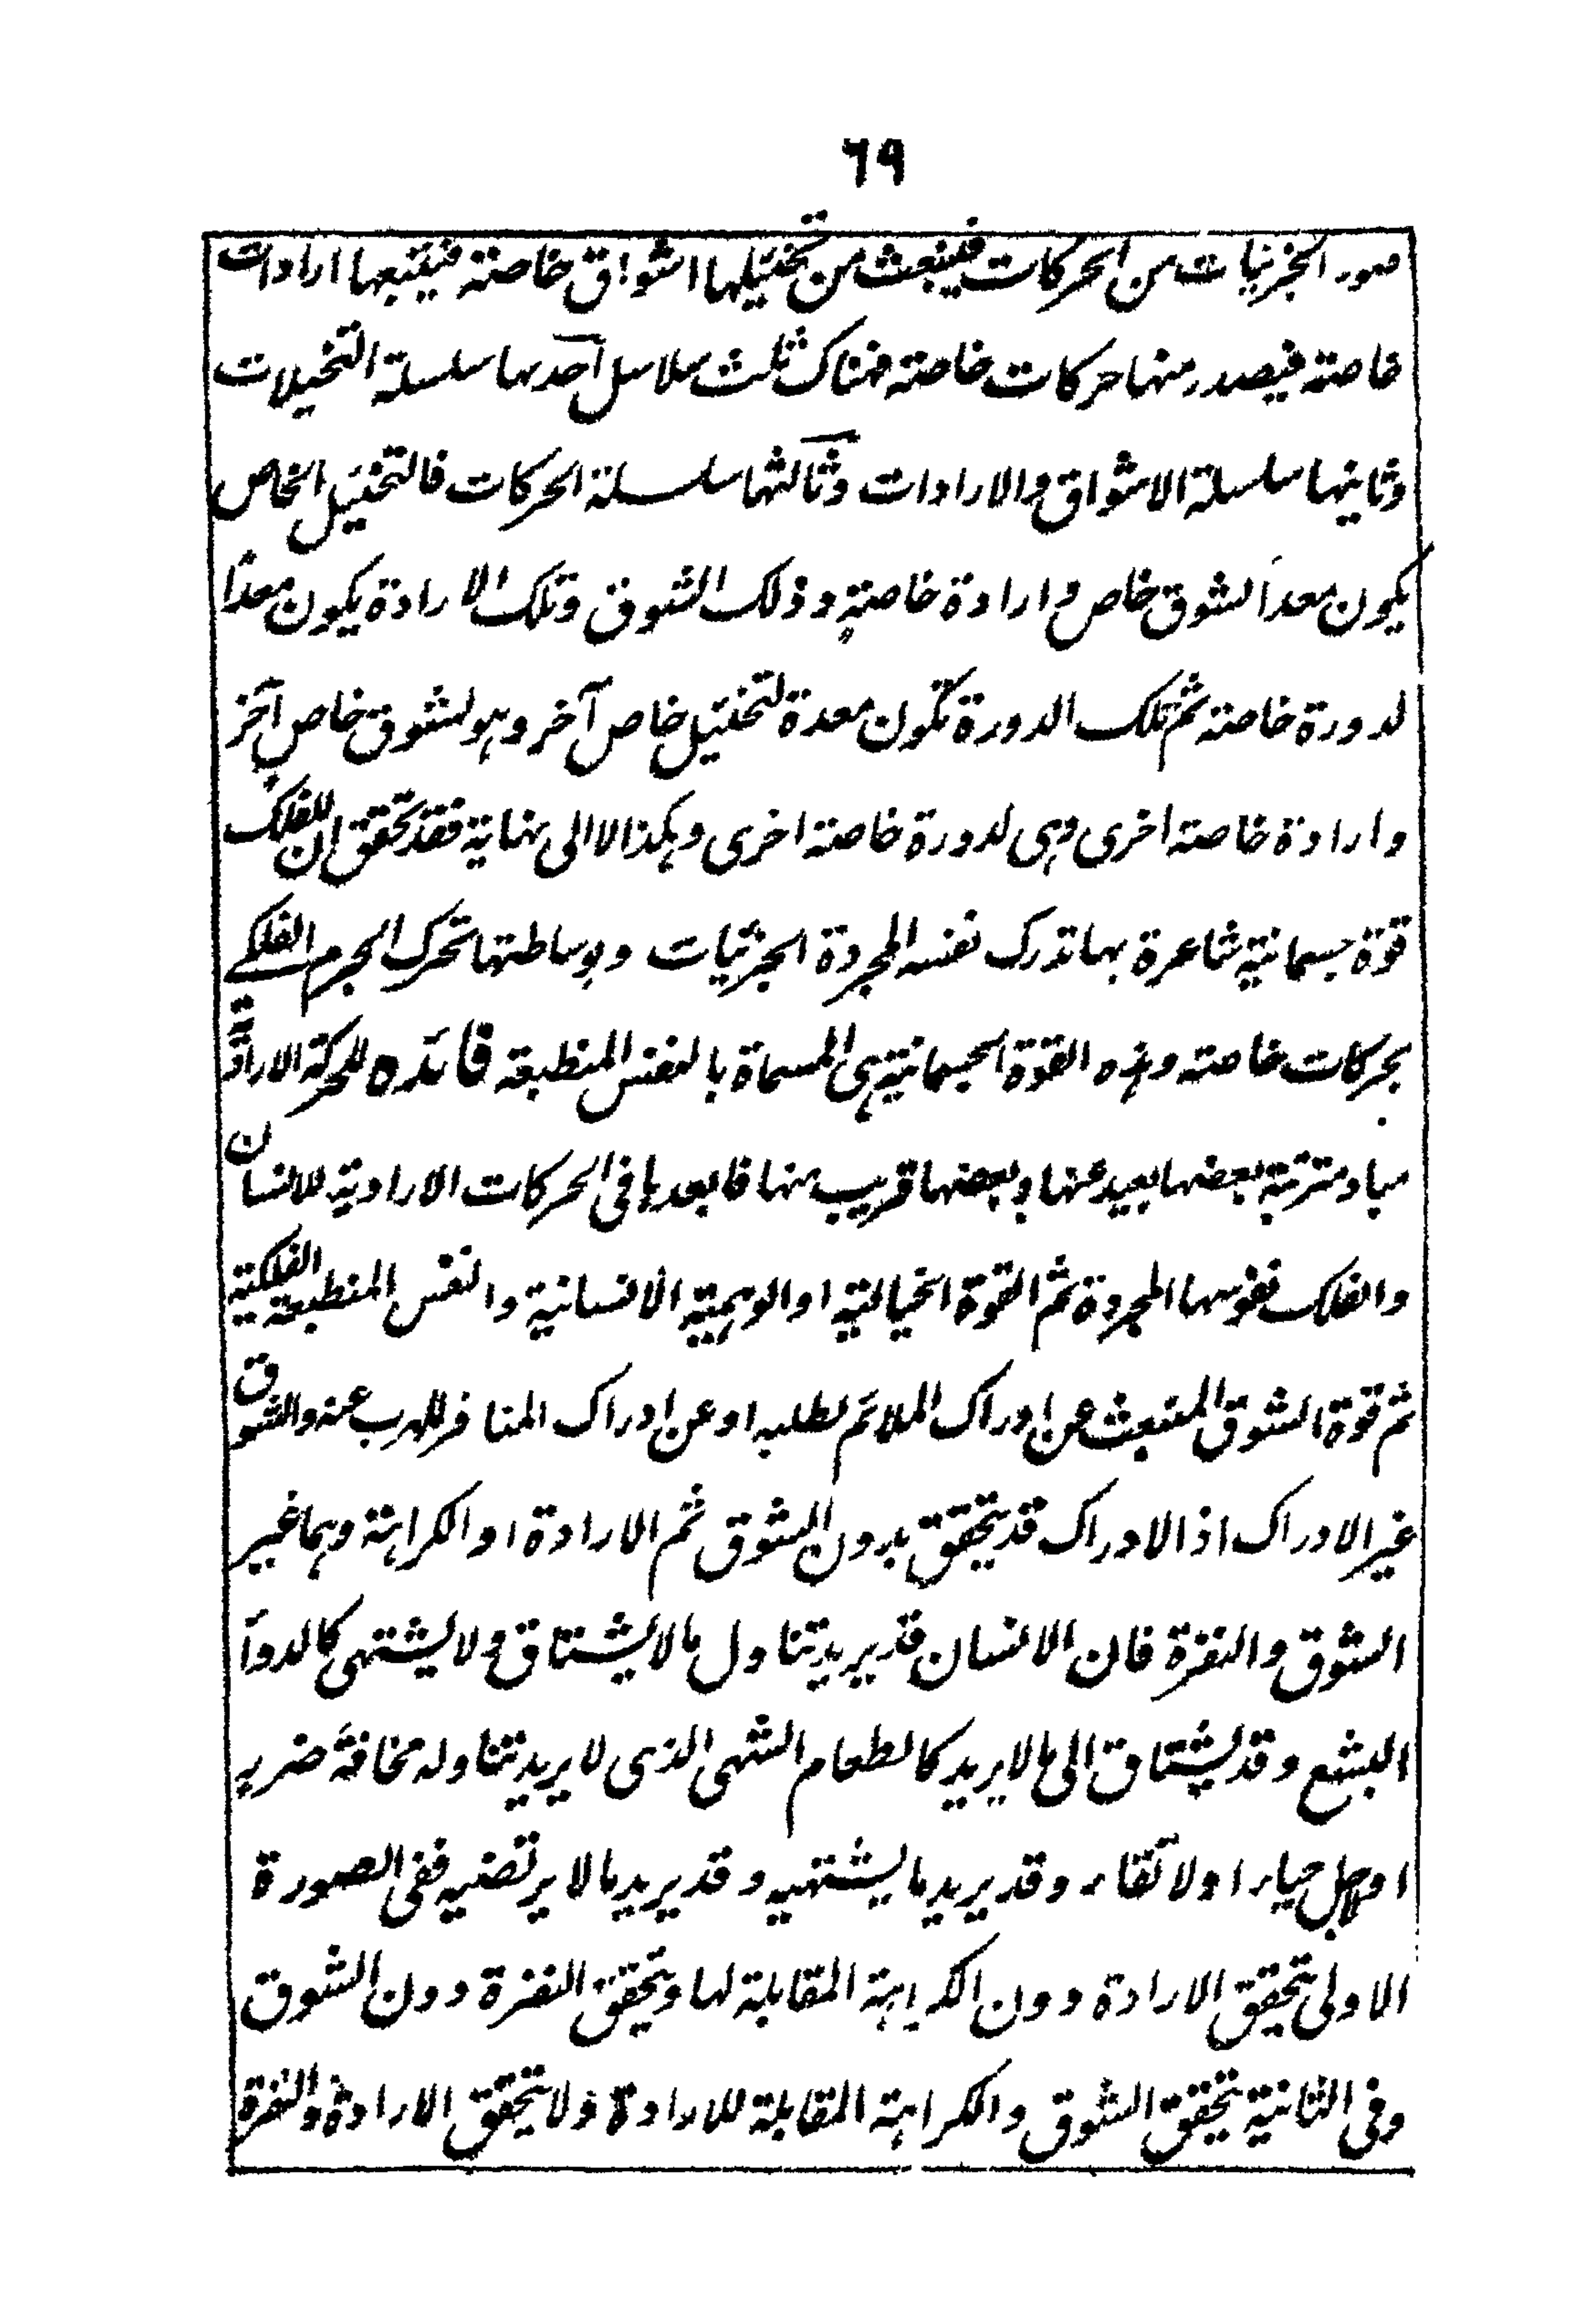 ٦٩
صور الجزئيات من الحركات فينبعث من تخيلها اشواق خاصة فيتبعها ارادات
خاصة فيصدر منها حركات خاصة فهناك ثلث سلاسل احدىها سلسلة التخيلات
وثانيها سلسلة الاشواق والارادات وثالثها سلسلة الحركات فالتخيل الخاص
يكون معدا لشوق خاص وارادة خاصة وذلك الشوق وتلك الارادة يكون معدا
لدورة خاصة ثم تلك الدورة تكون معدة لتخيل خاص آخر وهو لشوق خاص آخر
وارادة خاصة اخرى وهى لدورة خاصة اخرى وهكذا لا الى نهاية فقد تحقق ان للفلك
قوة جسمانية شاعرة بها تدرك نفسه المجردة الجزئيات وبوساطتها تحرك الجرم الفلكى
بحركات خاصة وهذه القوة الجسمانية هى المسماة بالنفس المنطبعة فائده للحركة الارادية
مباد مترتبة بعضها بعيد عنها وبعضها قريب منها فابعدها فى الحركات الارادية للانسان
والفلك نفوسها المجردة ثم القوة الخيالية او الوهمية الانسانية والنفس المنطبعة الفلكية
ثم قوة الشوق المنبعث عن ادراك الملائم لطلبه او عن ادراك المنافر للهرب عنه والشوق
غير الادراك اذ الادراك قد يتحقق بدون الشوق ثم الارادة او الكراهة وهما غير
الشوق والنفرة فان الانسان قد يريد تناول ما لا يشتاق ولا يشتهى كالدواء
البشع وقد يشتاق الى ما لا يريد كالطعام الشهى الذى لا يريد تناوله مخافة ضرر
او لاجل حياء او لاتقاء وقد يريد ما يشتهيه وقد يريد ما لا يرتضيه ففى الصورة
الاولى تحقق الارادة دون الكراهة المقابلة لها ويتحقق النفرة دون الشوق
وفى الثانية يتحقق الشوق والكراهة المقابلة للارادة ولا يتحقق الارادة والنفرة